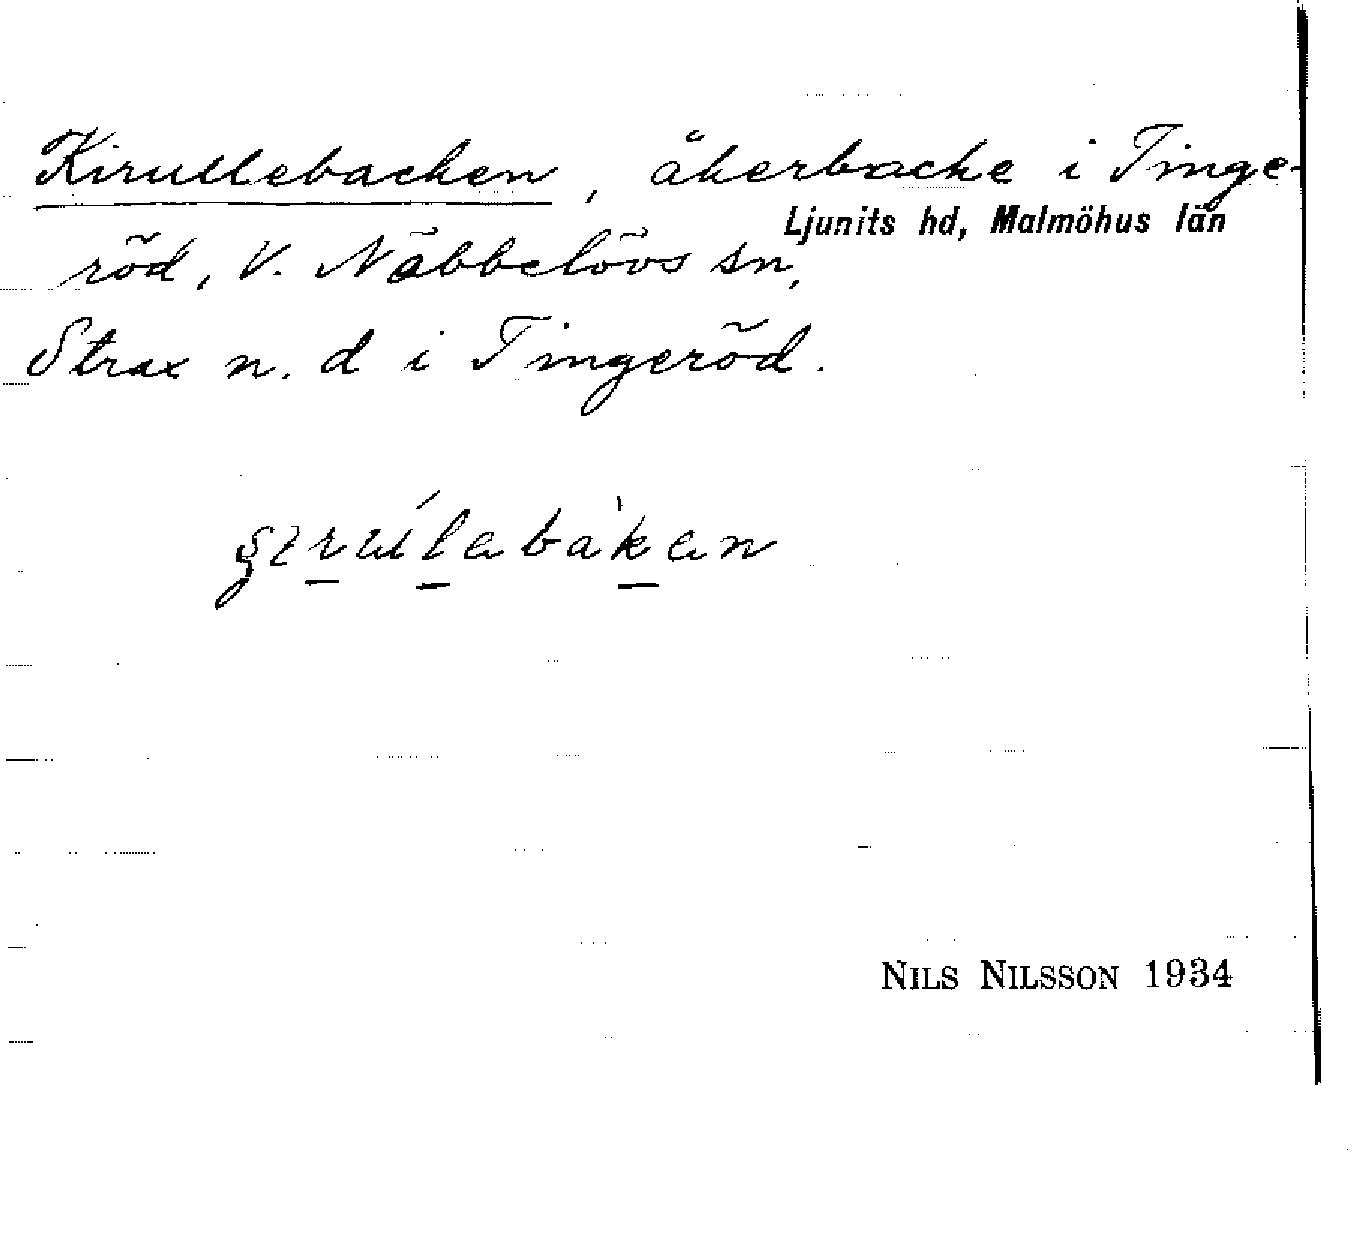 Kirullebacken, åkerbacke i Tinge-
Ljunits hd, Malmöhus län
röd, V. Näbbelövs sn,
Strax n. d i Tingeröd.
NILS NILSSON 1934